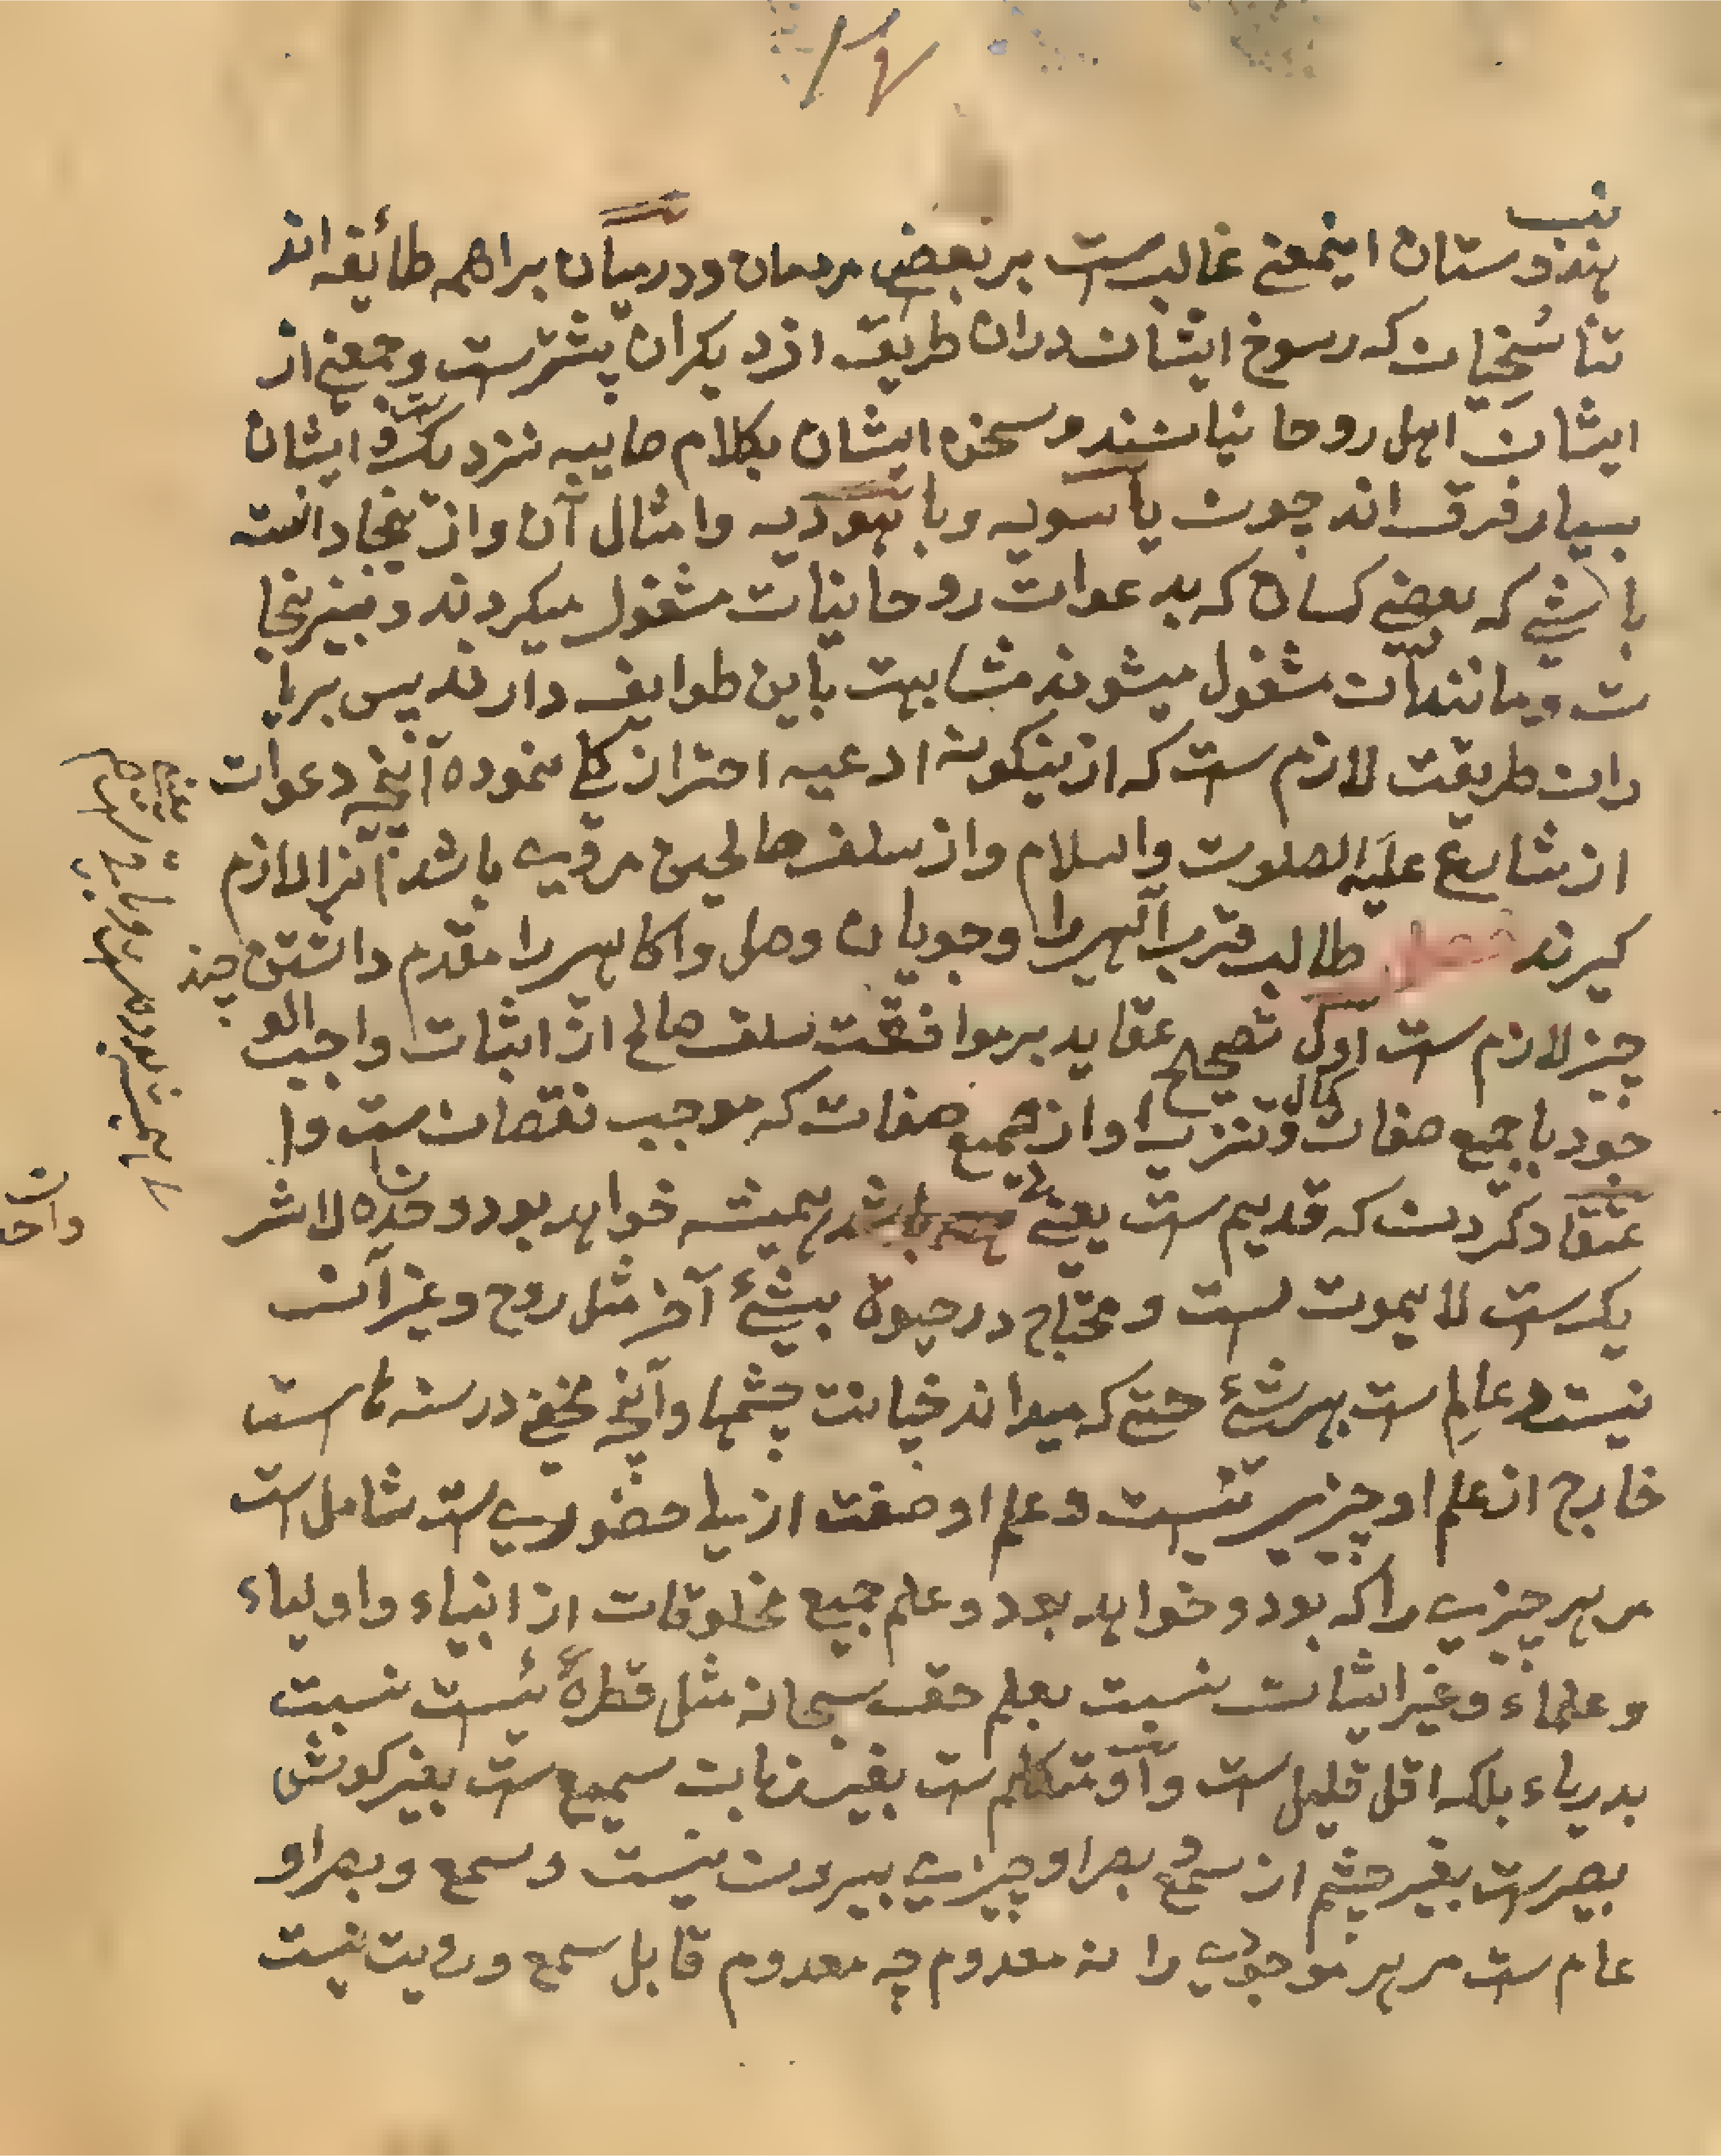 هندوستان اینمعنے غالب ست بر بعضے مردمان و درمیان براهمه طائفه اند
تناسخیان که رسوخ ایشان دران طریق از دیکران پیشتر ست و جمعے از
ایشان اہل روحانیانند و سخن ایشان بکلام صابیه نزدیک و ایشان
بسیار فرق اند چون باسویه و باہودیه و امثال آن و از ینجا دانسته
باشے که بعضے کسان که بدعوات روحانیات مشغول میکردند و نیرنجا
ت و مانند آن مشغول میشوند مشابہت باین طوایف دارند پس بر یا
ران طریقت لازم ست که ازینکونه ادعیه احتراز کلے نموده آنچه دعوات
از شارع علیه الصلوت والسلام و از سلف صالحین مروی باشد آنرا لازم
کیرند فصل طالب قرب آلہیرا و جویان وصل واکاہیرا مقدم داشتن چند
چیز لازم ست اول تصحیح عقاید بر موافقت سلف صالح از اثبات واجب الو
جود با جمیع صفات کمال و تنزیہ او از جمیع صفات که موجب نقصان ست و ا
عتقاد کردن که قدیم ست یعنے ہمیشه خواہد بود وحده لا شر
یک ست لا یموت ست و محتاج در حیوة بشیٔ آخر مثل روح و غیر آن
نیست و عالم ست بہر شیٔ حتے که میداند خیانت چشمہا و آنچه مخفے در سینه ہا ست
خارج از علم او چیزے نیست و علم او صفت ازلی حضوری ست شامل است
مر ہر چیزے را که بود و خواہد بود و علم جمیع مخلوقات از انبیاء و اولیاء
و علماء و غیر ایشان نسبت بعلم حق سبحانه مثل قطرهٔ نیست نسبت
بدریاء بلکه اقل قلیل ست و او متکلم ست بغیر زبان سمیع ست بغیر کوش
بصیر ست بغیر چشم از سمع و بصر او چیزے بیرون نیست و سمع و بصر او
عام ست مر ہر موجودی را نه معدوم چه معدوم قابل سمع و رویت نیست